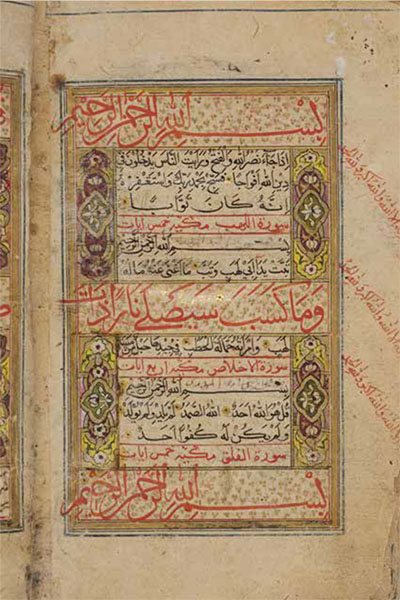 بسم الله الرحمن الرحيم
إذا جاء نصر الله والفتح ورأيت الناس يدخلون في
دين الله أفواجا فسبح بحمد ربك واستغفره
إنه كان توابا
سورة اللهب مكية خمس آيات
بسم الله الرحمن الرحيم
تبت يدا أبي لهب وتب ما أغنى عنه ماله
وما كسب سيصلى نارا ذات
لهب وامرأته حمالة الحطب في جيدها حبل من
سورة الاخلاص مكية اربع آيات
بسم الله الرحمن الرحيم
قل هو الله أحد الله الصمد لم يلد ولم يولد
ولم يكن له كفوا أحد
سورة الفلق مكية خمس آيات
بسم الله الرحمن الرحيم